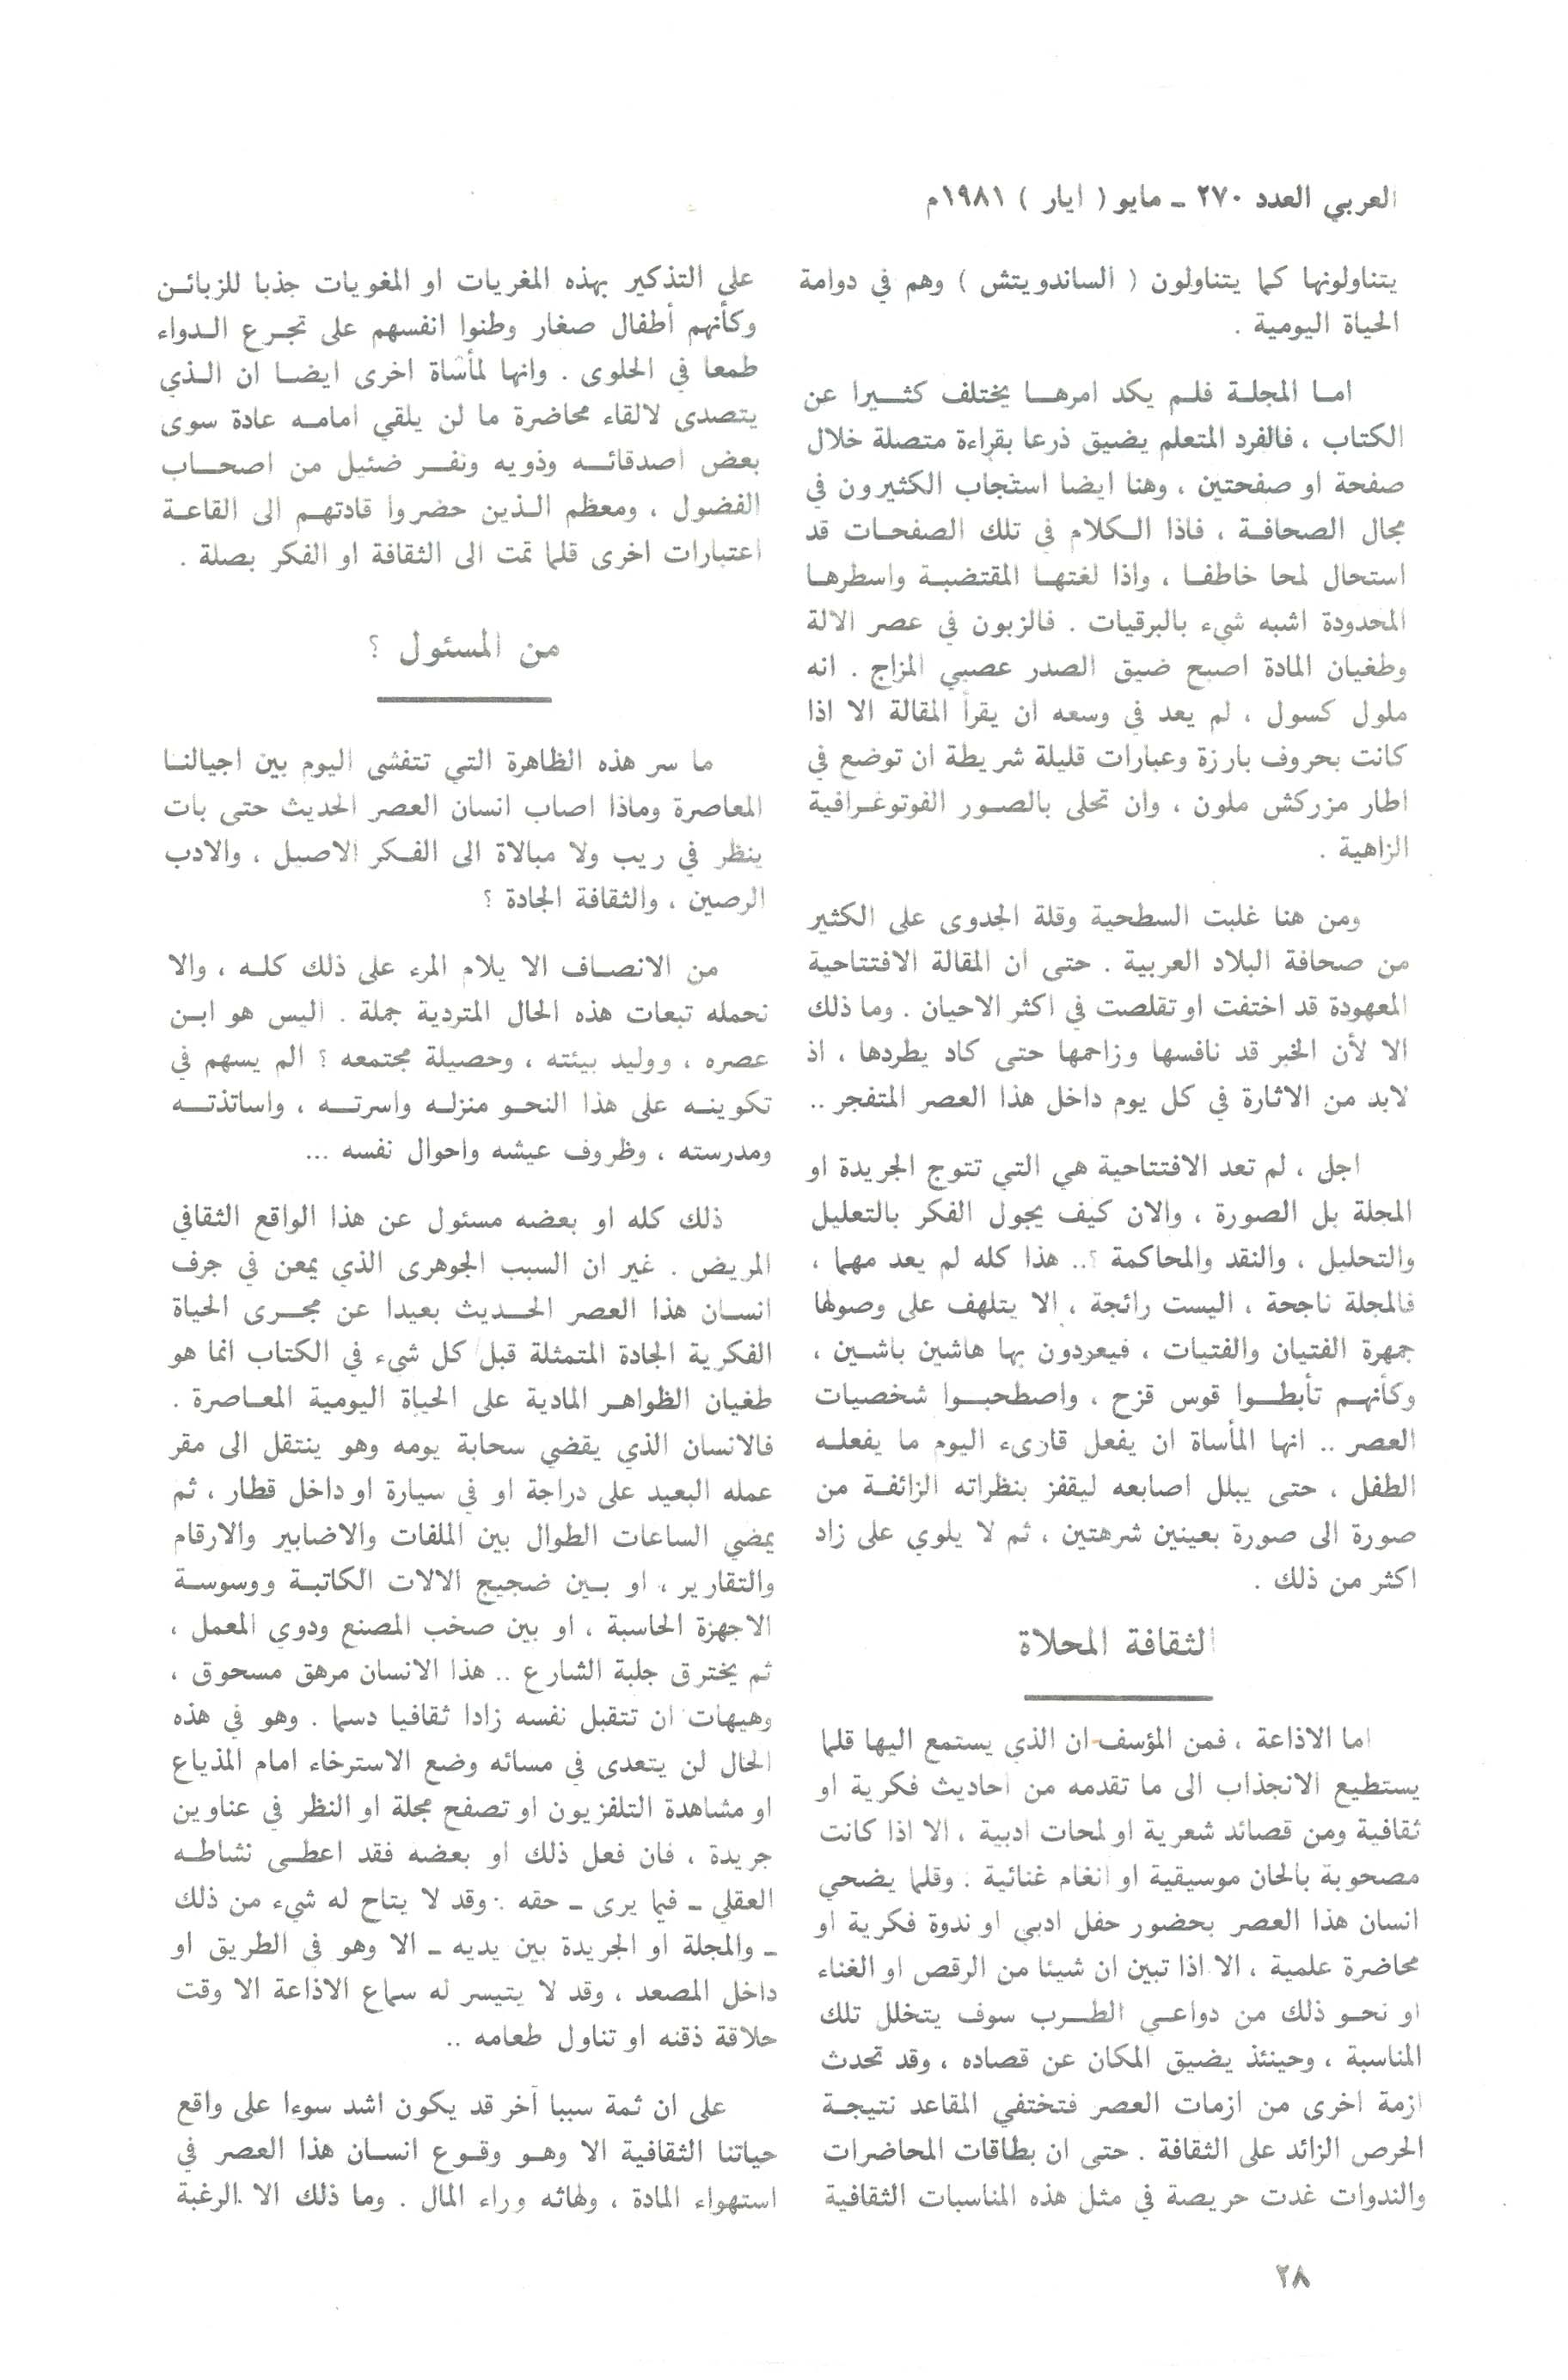 العربي العدد ٢٧٠ ـ مايو ( ايار ) ١٩٨١م
يتناولونها كما يتناولون ( الساندويتش ) وهم في دوامة
الحياة اليومية .
اما المجلة فلم يكد امرها يختلف كثيرا عن
الكتاب ، فالفرد المتعلم يضيق ذرعا بقراءة متصلة خلال
صفحة او صفحتين ، وهنا ايضا استجاب الكثيرون في
مجال الصحافة ، فاذا الكلام في تلك الصفحات قد
استحال لمحا خاطفا ، واذا لغتها المقتضبة واسطرها
المحدودة اشبه شيء بالبرقيات . فالزبون في عصر الالة
وطغيان المادة اصبح ضيق الصدر عصبي المزاج . انه
ملول كسول ، لم يعد في وسعه ان يقرأ المقالة الا اذا
كانت بحروف بارزة وعبارات قليلة شريطة ان توضع في
اطار مزركش ملون ، وان تحلى بالصور الفوتوغرافية
الزاهية .
ومن هنا غلبت السطحية وقلة الجدوى على الكثير
من صحافة البلاد العربية . حتى ان المقالة الافتتاحية
المعهودة قد اختفت او تقلصت في اكثر الاحيان . وما ذلك
الا لأن الخبر قد نافسها وزاحمها حتى كاد يطردها ، اذ
لابد من الاثارة في كل يوم داخل هذا العصر المتفجر ..
اجل ، لم تعد الافتتاحية هي التي تتوج الجريدة او
المجلة بل الصورة ، والان كيف يجول الفكر بالتعليل
والتحليل ، والنقد والمحاكمة ؟.. هذا كله لم يعد مهما ،
فالمجلة ناجحة ، اليست رائجة ، الا يتلهف على وصولها
جمهرة الفتيان والفتيات ، فيعودون بها هاشين باشين ،
وكأنهم تأبطوا قوس قزح ، واصطحبوا شخصيات
العصر .. انها المأساة ان يفعل قارىء اليوم ما يفعله
الطفل ، حتى يبلل اصابعه ليقفز بنظراته الزائفة من
صورة الى صورة بعينين شرهتين ، ثم لا يلوي على زاد
اكثر من ذلك .
الثقافة المحلاة
اما الاذاعة ، فمن المؤسف ان الذي يستمع اليها قلما
يستطيع الانجذاب الى ما تقدمه من احاديث فكرية او
ثقافية ومن قصائد شعرية او لمحات ادبية ، الا اذا كانت
مصحوبة بالحان موسيقية او انغام غنائية . وقلما يضحي
انسان هذا العصر بحضور حفل ادبي او ندوة فكرية او
محاضرة علمية ، الا اذا تبين ان شيئا من الرقص او الغناء
او نحو ذلك من دواعي الطرب سوف يتخلل تلك
المناسبة ، وحينئذ يضيق المكان عن قصاده ، وقد تحدث
ازمة اخرى من ازمات العصر فتختفي المقاعد نتيجة
الحرص الزائد على الثقافة . حتى ان بطاقات المحاضرات
والندوات غدت حريصة في مثل هذه المناسبات الثقافية
على التذكير بهذه المغريات او المغويات جذبا للزبائن
وكأنهم أطفال صغار وطنوا انفسهم على تجرع الدواء
طمعا في الحلوى . وانها لمأساة اخرى ايضا ان الذي
يتصدى لالقاء محاضرة ما لن يلقي امامه عادة سوى
بعض اصدقائه وذويه ونفر ضئيل من اصحاب
الفضول ، ومعظم الذين حضروا قادتهم الى القاعة
اعتبارات اخرى قلما تمت الى الثقافة او الفكر بصلة .
من المسئول ؟
ما سر هذه الظاهرة التي تتفشى اليوم بين اجيالنا
المعاصرة وماذا اصاب انسان العصر الحديث حتى بات
ينظر في ريب ولا مبالاة الى الفكر الاصيل ، والادب
الرصين ، والثقافة الجادة ؟
من الانصاف الا يلام المرء على ذلك كله ، والا
نحمله تبعات هذه الحال المتردية جملة . اليس هو ابن
عصره ، ووليد بيئته ، وحصيلة مجتمعه ؟ الم يسهم في
تكوينه على هذا النحو منزله واسرته ، واساتذته
ومدرسته ، وظروف عيشه واحوال نفسه ...
ذلك كله او بعضه مسئول عن هذا الواقع الثقافي
المريض . غير ان السبب الجوهرى الذي يمعن في جرف
انسان هذا العصر الحديث بعيدا عن مجرى الحياة
الفكرية الجادة المتمثلة قبل كل شيء في الكتاب انما هو
طغيان الظواهر المادية على الحياة اليومية المعاصرة .
فالانسان الذي يقضي سحابة يومه وهو ينتقل الى مقر
عمله البعيد على دراجة او في سيارة او داخل قطار ، ثم
يمضي الساعات الطوال بين الملفات والاضابير والارقام
والتقارير ، او بين ضجيج الالات الكاتبة ووسوسة
الاجهزة الحاسبة ، او بين صخب المصنع ودوي المعمل ،
ثم يخترق جلبة الشارع .. هذا الانسان مرهق مسحوق ،
وهيهات ان تتقبل نفسه زادا ثقافيا دسما . وهو في هذه
الحال لن يتعدى في مسائه وضع الاسترخاء امام المذياع
او مشاهدة التلفزيون او تصفح مجلة او النظر في عناوين
جريدة ، فان فعل ذلك او بعضه فقد اعطى نشاطه
العقلي ـ فيما يرى ـ حقه . وقد لا يتاح له شيء من ذلك
ـ والمجلة او الجريدة بين يديه ـ الا وهو في الطريق او
داخل المصعد ، وقد لا يتيسر له سماع الاذاعة الا وقت
حلاقة ذقنه او تناول طعامه ..
على ان ثمة سببا آخر قد يكون اشد سوءا على واقع
حياتنا الثقافية الا وهو وقوع انسان هذا العصر في
استهواء المادة ، ولهاثه وراء المال . وما ذلك الا الرغبة
٢٨